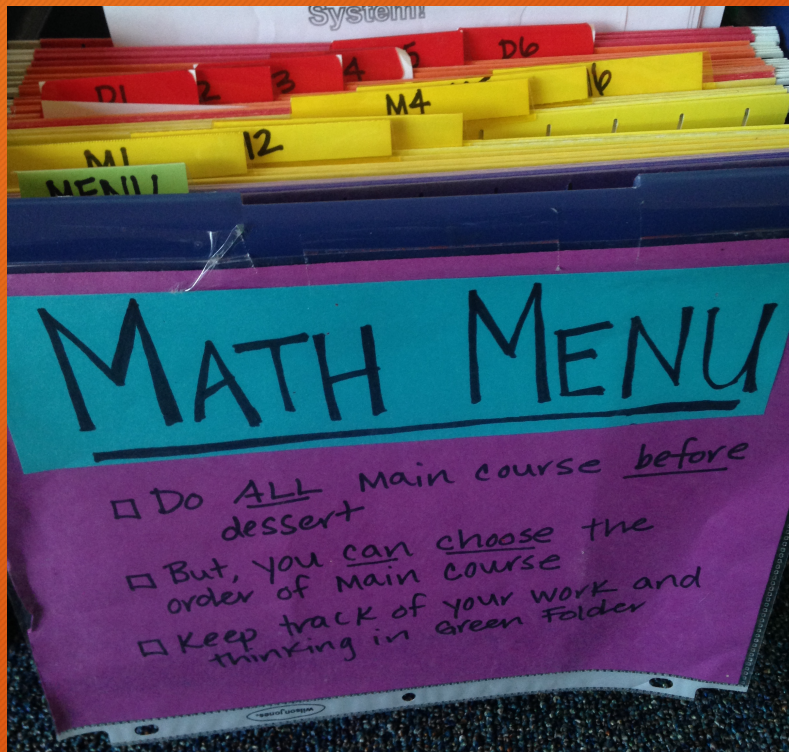 System!
5 D6
D1 2 3 4
16
M4
12
M1
MENU
MATH MENU
Do ALL Main course before
dessert
But, you can choose the
order of Main course
Keep track of your work and
thinking in Green Folder
wilson jones